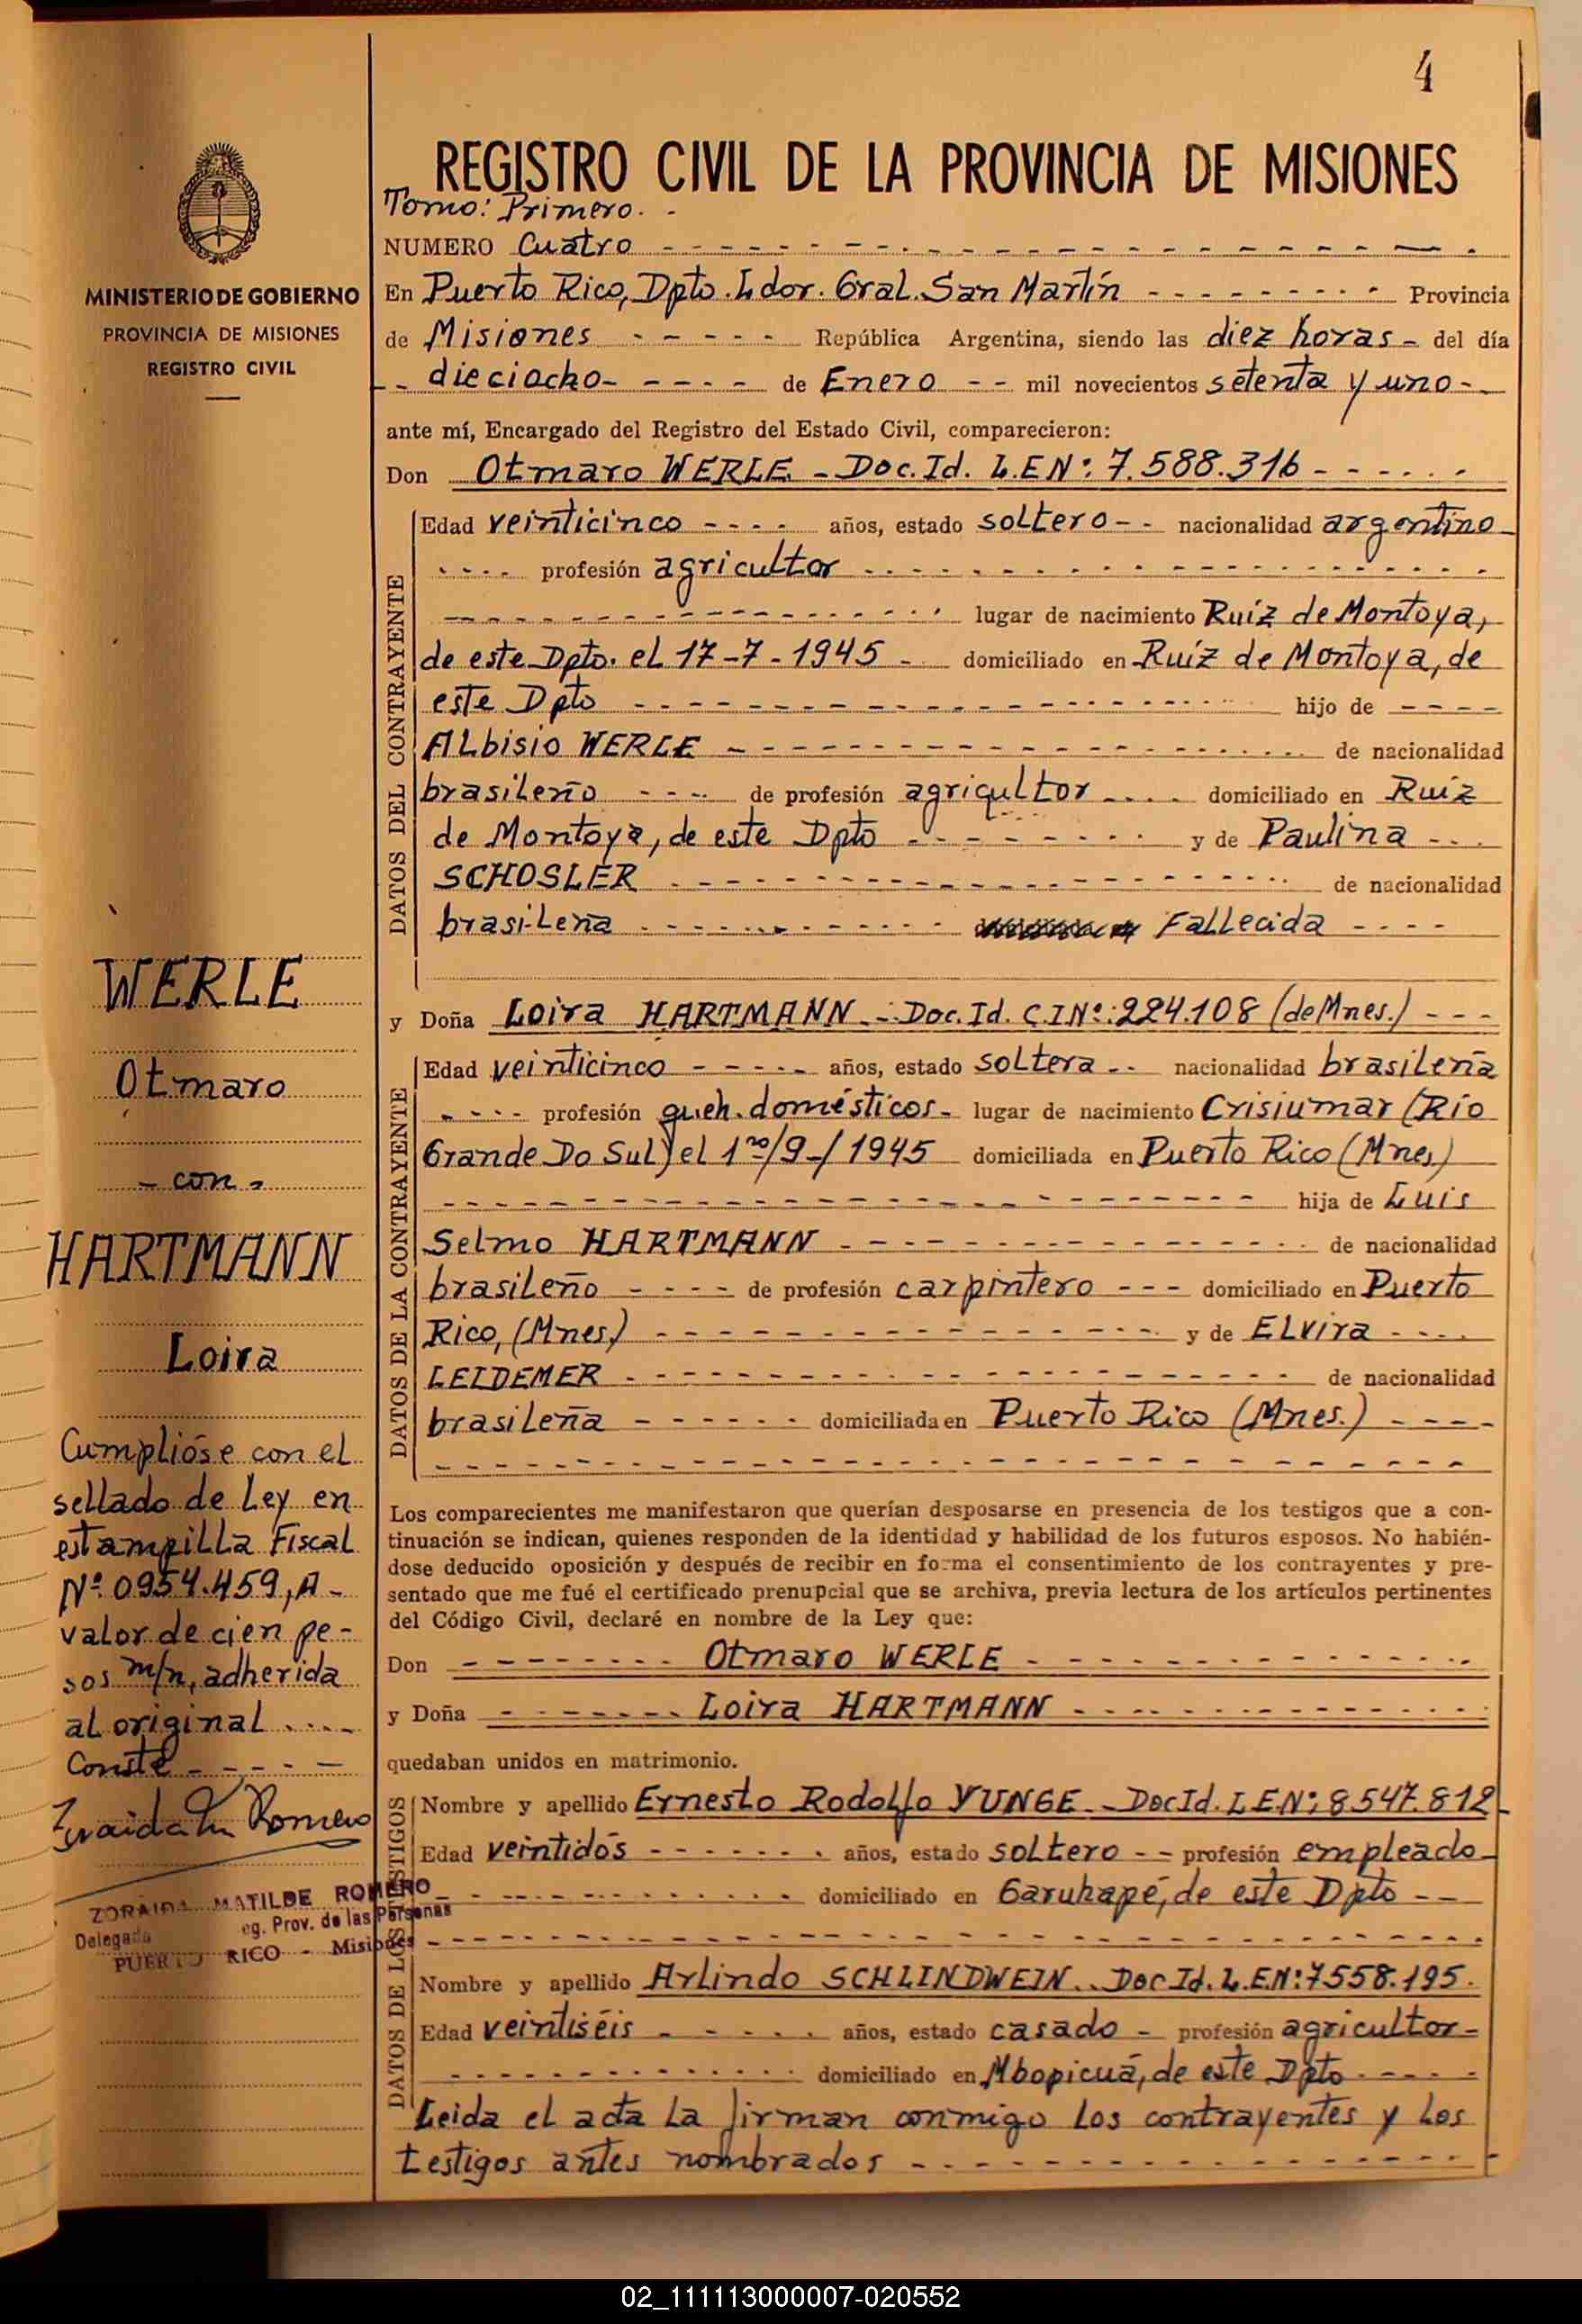 4
REGISTRO CIVIL DE LA PROVINCIA DE MISIONES
Tomo: Primero.
NUMERO Cuatro
En Puerto Rico, Dpto. Ldor. Gral. San Martín Provincia
de Misiones República Argentina, siendo las diez horas del día
dieciocho de Enero mil novecientos setenta y uno
ante mí, Encargado del Registro del Estado Civil, comparecieron:
Don Otmaro WERLE - Doc. Id. L.E Nº: 7.588.316
DATOS DEL CONTRAYENTE
Edad veinticinco años, estado soltero nacionalidad argentino
profesión agricultor
lugar de nacimiento Ruíz de Montoya,
de este Dpto. el 17-7-1945 domiciliado en Ruíz de Montoya, de
este Dpto hijo de
ALbisio WERLE de nacionalidad
brasileño de profesión agricultor domiciliado en Ruiz
de Montoya, de este Dpto y de Paulina
SCHOSLER de nacionalidad
brasileña Fallecida
y Doña Loira HARTMANN - Doc. Id. C.I Nº: 224.108 (de Mnes.)
DATOS DE LA CONTRAYENTE
Edad veinticinco años, estado soltera nacionalidad brasileña
profesión queh. domésticos lugar de nacimiento Crisiumar (Río
Grande Do Sul) el 1ro/9-/1945 domiciliada en Puerto Rico (Mnes)
hija de Luis
Selmo HARTMANN de nacionalidad
brasileño de profesión carpintero domiciliado en Puerto
Rico, (Mnes) y de ELvira
LEIDEMER de nacionalidad
brasileña domiciliada en Puerto Rico (Mnes.)
Los comparecientes me manifestaron que querían desposarse en presencia de los testigos que a con-
tinuación se indican, quienes responden de la identidad y habilidad de los futuros esposos. No habién-
dose deducido oposición y después de recibir en forma el consentimiento de los contrayentes y pre-
sentado que me fué el certificado prenupcial que se archiva, previa lectura de los artículos pertinentes
del Código Civil, declaré en nombre de la Ley que:
Don Otmaro WERLE
y Doña Loira HARTMANN
quedaban unidos en matrimonio.
DATOS DE LOS TESTIGOS
Nombre y apellido Ernesto Rodolfo YUNGE - Doc Id. L.E.Nº: 8547.812
Edad veintidós años, estado soltero profesión empleado
domiciliado en Garuhapé, de este Dpto
Nombre y apellido Arlindo SCHLINDWEIN. Doc Id. L.E.Nº: 7558.195.
Edad veintiséis años, estado casado profesión agricultor
domiciliado en Mbopicuá, de este Dpto
Leida el acta La firman conmigo Los contrayentes y Los
testigos antes nombrados
MINISTERIO DE GOBIERNO
PROVINCIA DE MISIONES
REGISTRO CIVIL
WERLE
Otmaro
- con -
HARTMANN
Loira
Cumplióse con el
sellado de Ley en
estampilla Fiscal
Nº 0954.459, A
valor de cien pe-
sos m/n, adherida
al original
Conste
Zoraida M Romero
ZORAIDA MATILDE ROMERO
Delegada eg. Prov. de las Personas
PUERTO RICO - Misiones
02_111113000007-020552